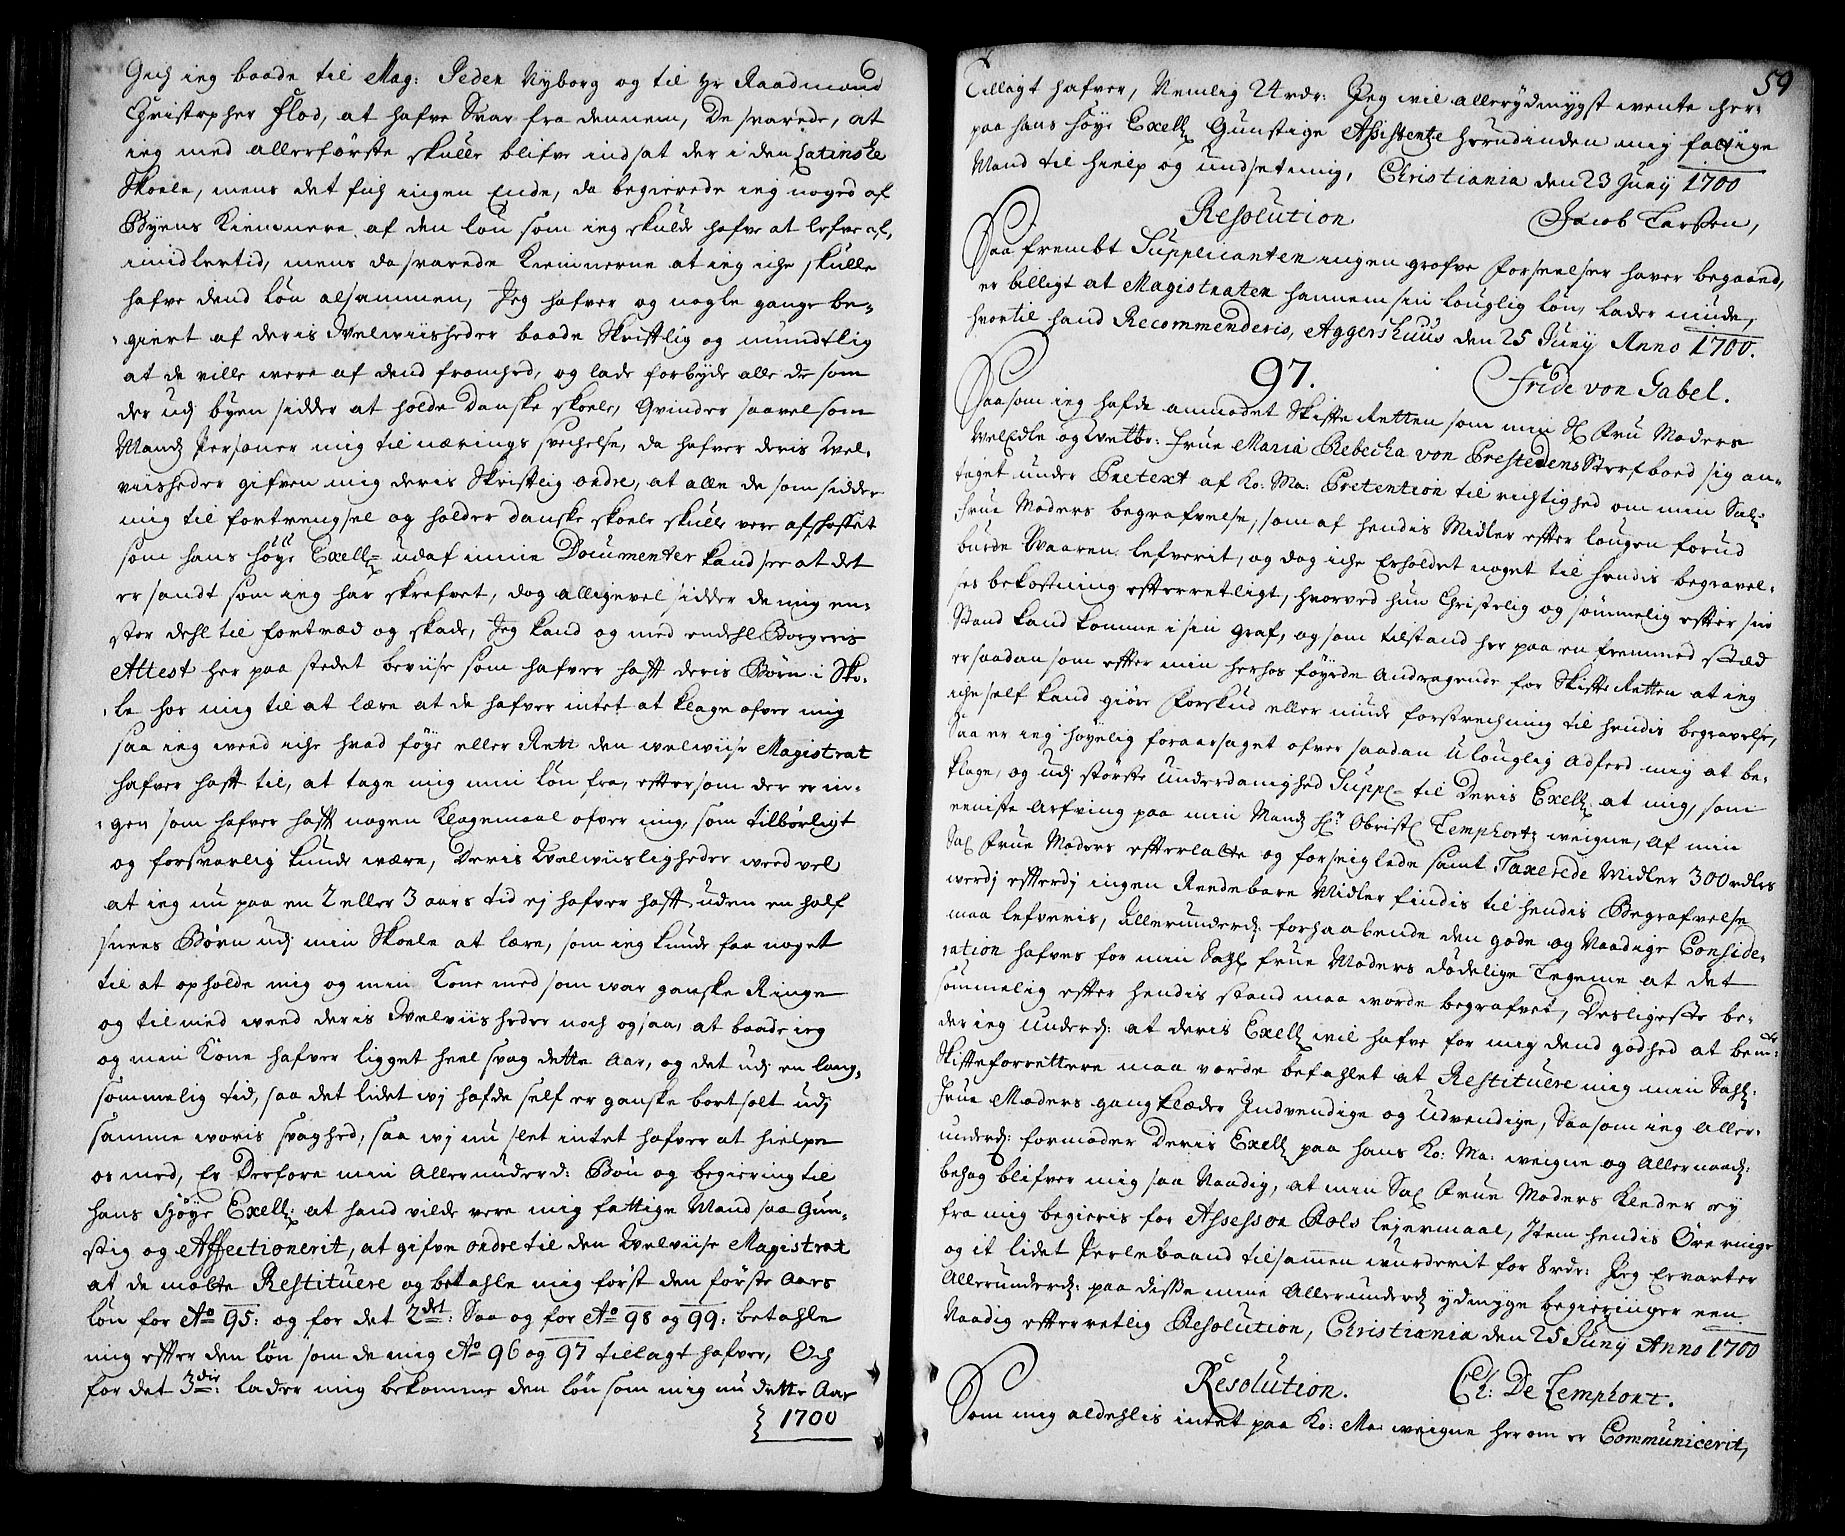 6
Gich ieg baade til Mag: Peder Nyborg og til Hr Raadmand
Christopher Flod, at hafve Svar fra dennem, De svarede, at
ieg med allerførste skulle blifve indsat der i den Latinske
Skoele, mens det fich ingen Ende, da begierede ieg noged af
Byens Kiemnere af den løn som ieg skulde hafve at lefve af,
imidlertid, mens da svarede Kiemnerne at ieg iche skulle
hafve dend løn alsammen, Jeg hafver og nogle gange be-
giert af deris Velwiisheder baade Skriftlig og mundtlig
at de ville were af dend fromhed, og lade forbyde alle de som
der udj byen sidder at holde danske skoele, Qvinder saavelsom
Mands Personer mig til nærings svechelse, da hafver deris Wel-
viisheder gifven mig deris Skriftlig ordre, at alle de som sidder
mig til fortrengsel og holder danske skoele skulle vere afskaffet
som hans høye Excell: udaf mine Documenter kand see at det
er sandt som ieg har skrefvet, dog alligevel sidder de mig en-
stor dehl til fortræd og skade, Jeg kand og med endehl Borgeres
Attest her paa stedet beviise som hafver hafft deris Børn i Sko-
le hos mig til at lære at de hafver intet at klage ofver mig
saa ieg weed iche hvad føye eller Rett den welwiise Magistrat
hafver hafft til, at tage mig min løn fra, eftersom der er in-
gen som hafver hafft nogen Klagemaal ofver mig, som tilbørligt
og forsvarlig kunde være, Deris Welwiisligheder weed vel
at ieg nu paa en 2 eller 3 aars tid ej hafver hafft uden en half
snees Børn udj min Skoele at lære, som ieg kunde faa noget
til at opholde mig og min Kone med som war ganske Ringe
og til med weed deris Welviisheder noch ogsaa, at baade ieg
og min Kone hafver ligget heel svag dette Aar, og det udj en lang-
sommelig tid, saa det lidet wj hafde self er ganske bortsolt udj
samme woris svaghed, saa wj nu slet intet hafver at hielpe
os med, Er Derfore min Allerunderd: Bøn og begiering til
hans Høye Excell: at hand vilde vere mig fattige Mand saa Gun-
stig og Affectionerit, at gifve ordre til den Welviise Magistrat
at de motte Restituere og betahle mig først den første Aars
løn for Ao 95: og for det 2det: Saa og for Ao 98 og 99: betahle
mig effter den løn som de mig Ao 96 og 97 tillagt hafver, Och
for det 3die: lader mig bekomme den løn som mig nu dette Aar
1700
59
Tillagt hafver, Nemlig 24 rdr: Jeg wil allerydmygst wente her-
paa hans høye Excell Gunstige Assistente herudinden mig fattige
Mand til hielp og undsetning, Christiania den 23 Junij 1700
Resolution Jacob Larssen,
Saa frembt Supplicanten ingen grofve forseelser haver begaaed,
er billigt at Magistraten hannem sin louglig løn, lader niude,
hvortil hand Recommenderis, Aggershuus den 25 Junij Anno 1700.
97. Fride von Gabel.
Saasom ieg hafde anmodet Skifte Retten som min Sl Fru Moders
Velædle og Welb: Frue Maria Rebecka von Prestedens Sterfboed sig an-
taget under Pretext af Ko: Ma: Pretention til rigtighed om min Sal:
Frue Moders begrafvelse, som af hendis Midler effter lougen forud
burde Waaren lefverit, og dog iche Erholdet noget til hendis begravel-
ses bekostning efterretligt, hvorved hun Christelig og sømmelig effter sin
Stand kand komme i sin graf, og som tilstand her paa en fremmed Stæd
er saadan som effter min herhos føyede Andragende for Skifte Retten at ieg
iche self kand giøre Forskud eller niude forstrechning til hendis begravelse,
Saa er ieg høyelig foraarsaget ofver saadan Ulouglig Adferd mig at be-
klage, og udj største Underdanighed Suppl: til Deris Excell: at mig, som
eeniste Arfving paa min Mands Hr Obriste Temphortz weigne, Af min
Sal Frue Moders effterlatte og forseiglede samt Taxerede Midler 300 rdlrs
werdj effterdj ingen Reedebare Midler findis til hendis Begrafvelse
maa lefveris, Allerunderd: forhaabende den gode og Naadige Conside-
ration hafves for min Sahl: Frue Moders dødelige Legeme at det
sømmelig effter hendis stand maa worde begrafvet, Desligeste be-
der ieg Underd: at deris Excell wil hafve for mig dend godhed at bemte
Skifteforrettere maa vorde befahlet at Restituere mig min Sahl:
Frue Moders gangklæder Indvendige og Udvendige, Saasom ieg Aller-
underd: formoder Deris Excell paa hans Ko: Ma: weigne og Allernaad:
behag blifver mig saa Naadig, at min Sal Frue Moders Kleder ey
fra mig begieris for Assessor Rols Lejermaal, Item hendis Ørering
og it lidet Perlebaand tilsammen wurderit for 8 rdr: Jeg Erwarter
Allerunderd: paa disse mine Allerunderd ydmyge begieringer een
Naadig effterretlig Resolution, Christiania den 25 Junij Anno 1700
Resolution. Ch: De Temphort.
Som mig aldehlis intet paa Ko: Ma: weigne herom er Communicerit,